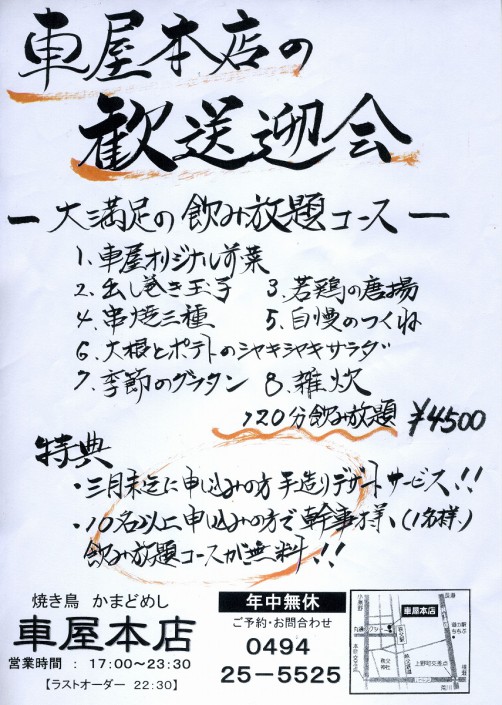 車屋本店の
歓送迎会
ー大満足の飲み放題コースー
1.車屋オリジナル前菜
2.出し巻き玉子 3.若鶏の唐揚
4.串焼三種 5.自慢のつくね
6.大根とポテトのシャキシャキサラダ
7.季節のグラタン 8.雑炊
120分飲み放題 ¥4500
特典
・三月末迄に申し込みの方手造りデザートサービス!!
・10名以上申し込みの方で幹事様、(1名様)
飲み放題コースが無料!!
焼き鳥 かまどめし
車屋本店
営業時間 : 17:00~23:30
【ラストオーダー 22:30】
年中無休
ご予約・お問合わせ
0494
25-5525
車屋本店
上野町交差点